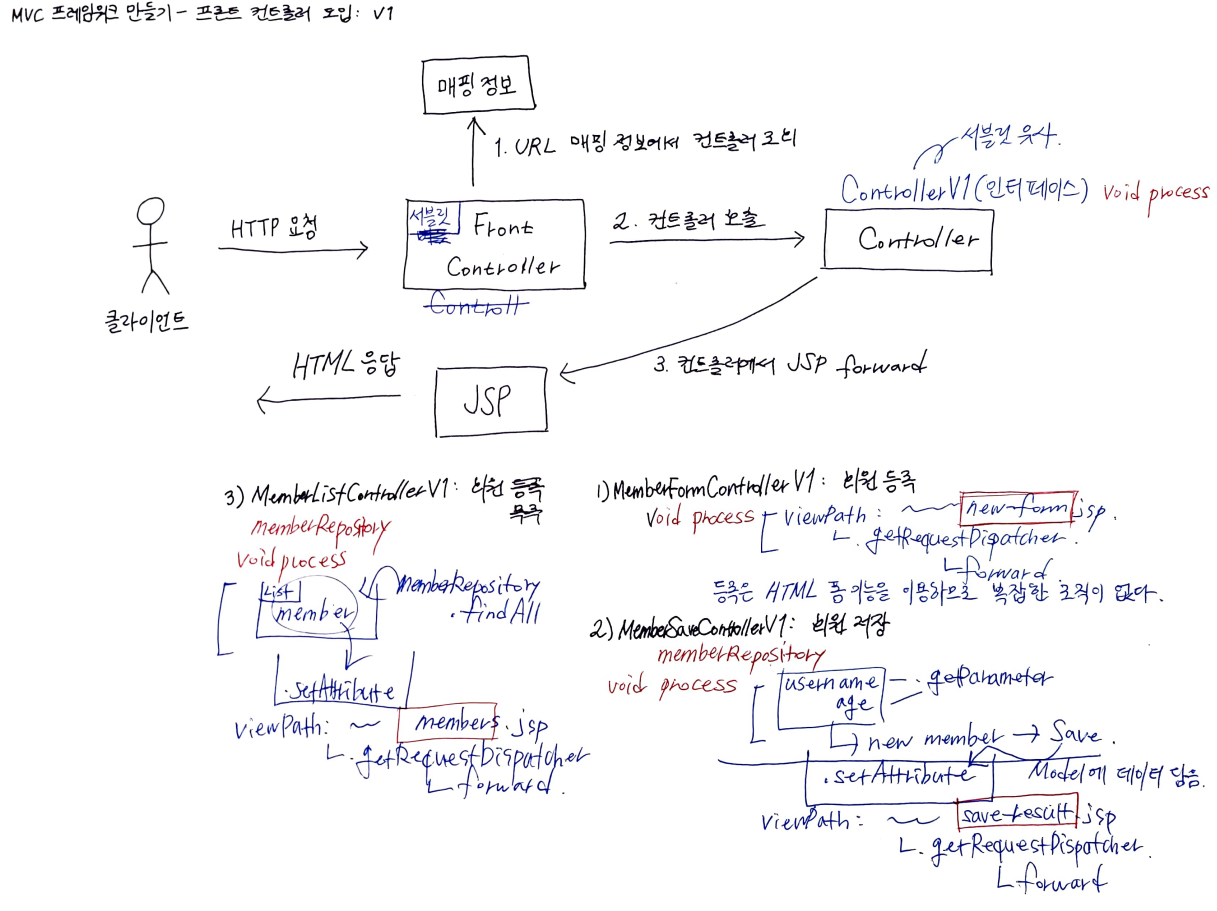 MVC 프레임워크 만들기 - 프론트 컨트롤러 도입: V1
매핑 정보
1. URL 매핑 정보에서 컨트롤러 조회
서블릿 유사.
ControllerV1(인터페이스) void process
HTTP 요청
서블릿
Front
Controller
Controll
2. 컨트롤러 호출
Controller
클라이언트
HTML 응답
JSP
3. 컨트롤러에서 JSP forward
3) MemberListControllerV1: 회원 등록
목록
memberRepository
void process
List
member
memberRepository
.findAll
.setAttribute
viewPath: ~ members.jsp
.getRequestDispatcher
.forward.
1) MemberFormControllerV1: 회원 등록
void process
viewPath: ~ new-form.jsp.
.getRequestDipatcher.
forward.
등록은 HTML 폼 기능을 이용하므로 복잡한 로직이 없다.
2) MemberSaveControllerV1: 회원 저장
memberRepository
void process
username
age
.getParameter
new member → Save.
.setAttribute
Model에 데이터 담음.
viewPath: ~ save-result.jsp
.getRequestDispatcher.
.forward